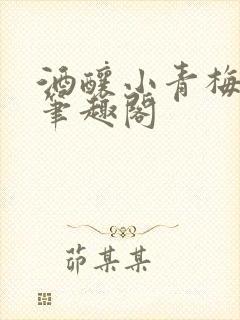 酒釀小青梅
筆趣閣
茆某某